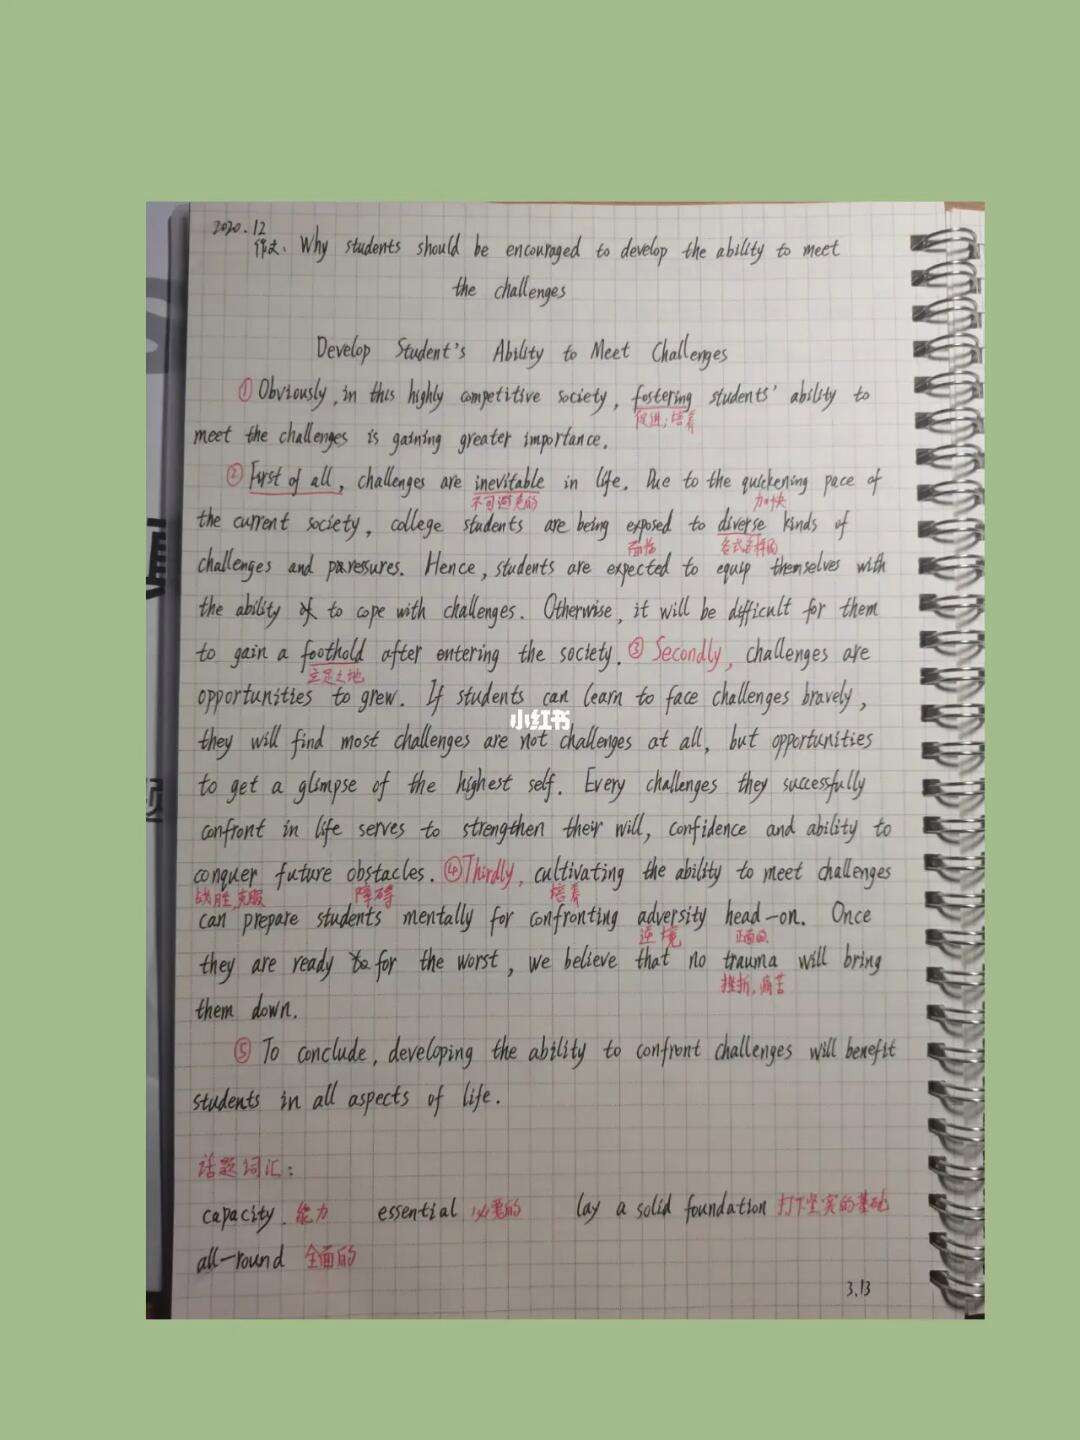 2020.12
作文: Why students should be encouraged to develop the ability to meet
the challenges
Develop Student's Ability to Meet Challenges
① Obviously, in this highly competitive society, fostering students' ability to
促进;培养
meet the challenges is gaining greater importance.
② First of all, challenges are inevitable in life. Due to the quickening pace of
不可避免的 加快
the current society, college students are being exposed to diverse kinds of
面临 各式各样的
challenges and paressures. Hence, students are expected to equip themselves with
the ability to cope with challenges. Otherwise, it will be difficult for them
to gain a foothold after entering the society. ③ Secondly, challenges are
立足之地
opportunities to grew. If students can learn to face challenges bravely,
小红书
they will find most challenges are not challenges at all, but opportunities
to get a glimpse of the highest self. Every challenges they successfully
confront in life serves to strengthen their will, confidence and ability to
conquer future obstacles. ④ Thirdly, cultivating the ability to meet challenges
战胜,克服 障碍 培养
can prepare students mentally for confronting adversity head-on. Once
逆境 正面地
they are ready for the worst, we believe that no trauma will bring
挫折,痛苦
them down.
⑤ To conclude, developing the ability to confront challenges will benefit
students in all aspects of life.
话题词汇:
capacity. 能力 essential 必要的 lay a solid foundation 打下坚实的基础
all-round 全面的
3.13